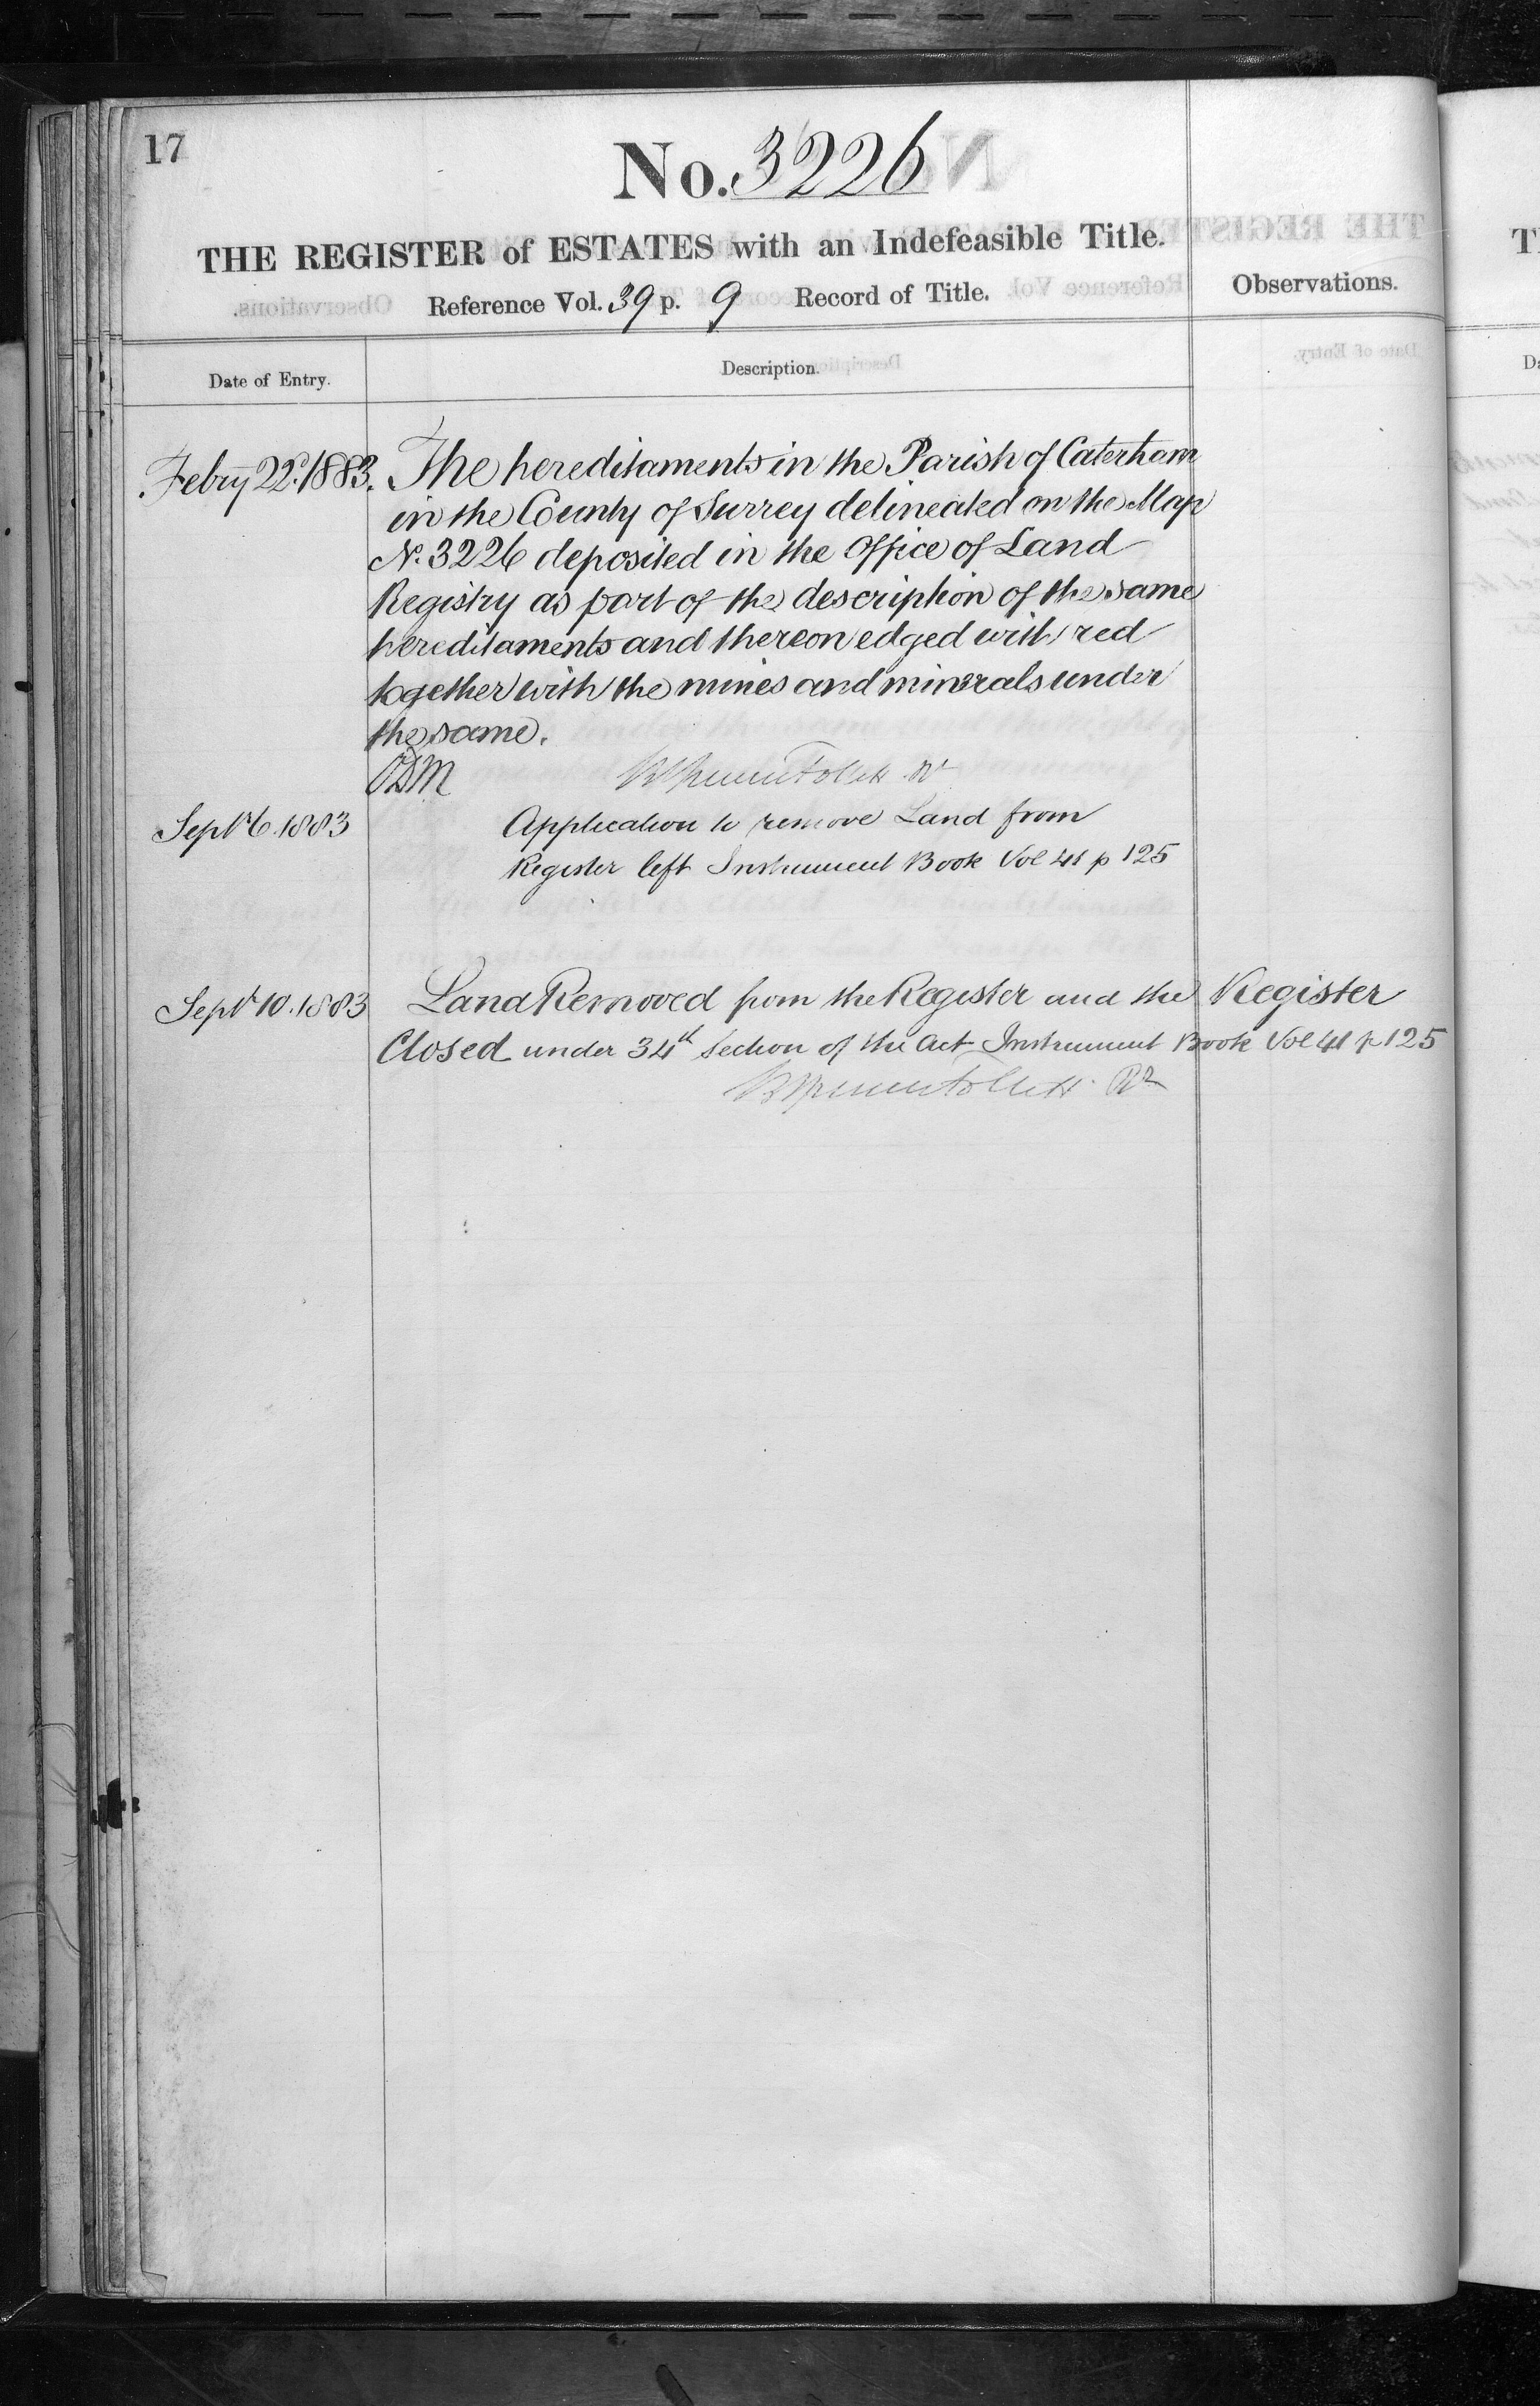 17
No. 3226
THE REGISTER of ESTATES with an Indefeasible Title.
Reference Vol. 39 p. 9 Record of Title.
Observations.
Date of Entry.
Description.
Febry 22d. 1883. The hereditaments in the Parish of Caterham
in the County of Surrey delineated on the Map
No. 3226 deposited in the Office of Land
Registry as part of the description of the same
hereditaments and thereon edged with red
together with the mines and minerals under
the same.
Septr 6. 1883 Application to remove Land from
Register left Instrument Book Vol 41 p 125
Septr 10. 1883 Land Removed from the Register and the Register
Closed under 34th Section of the Act Instrument Book Vol 41 p 125